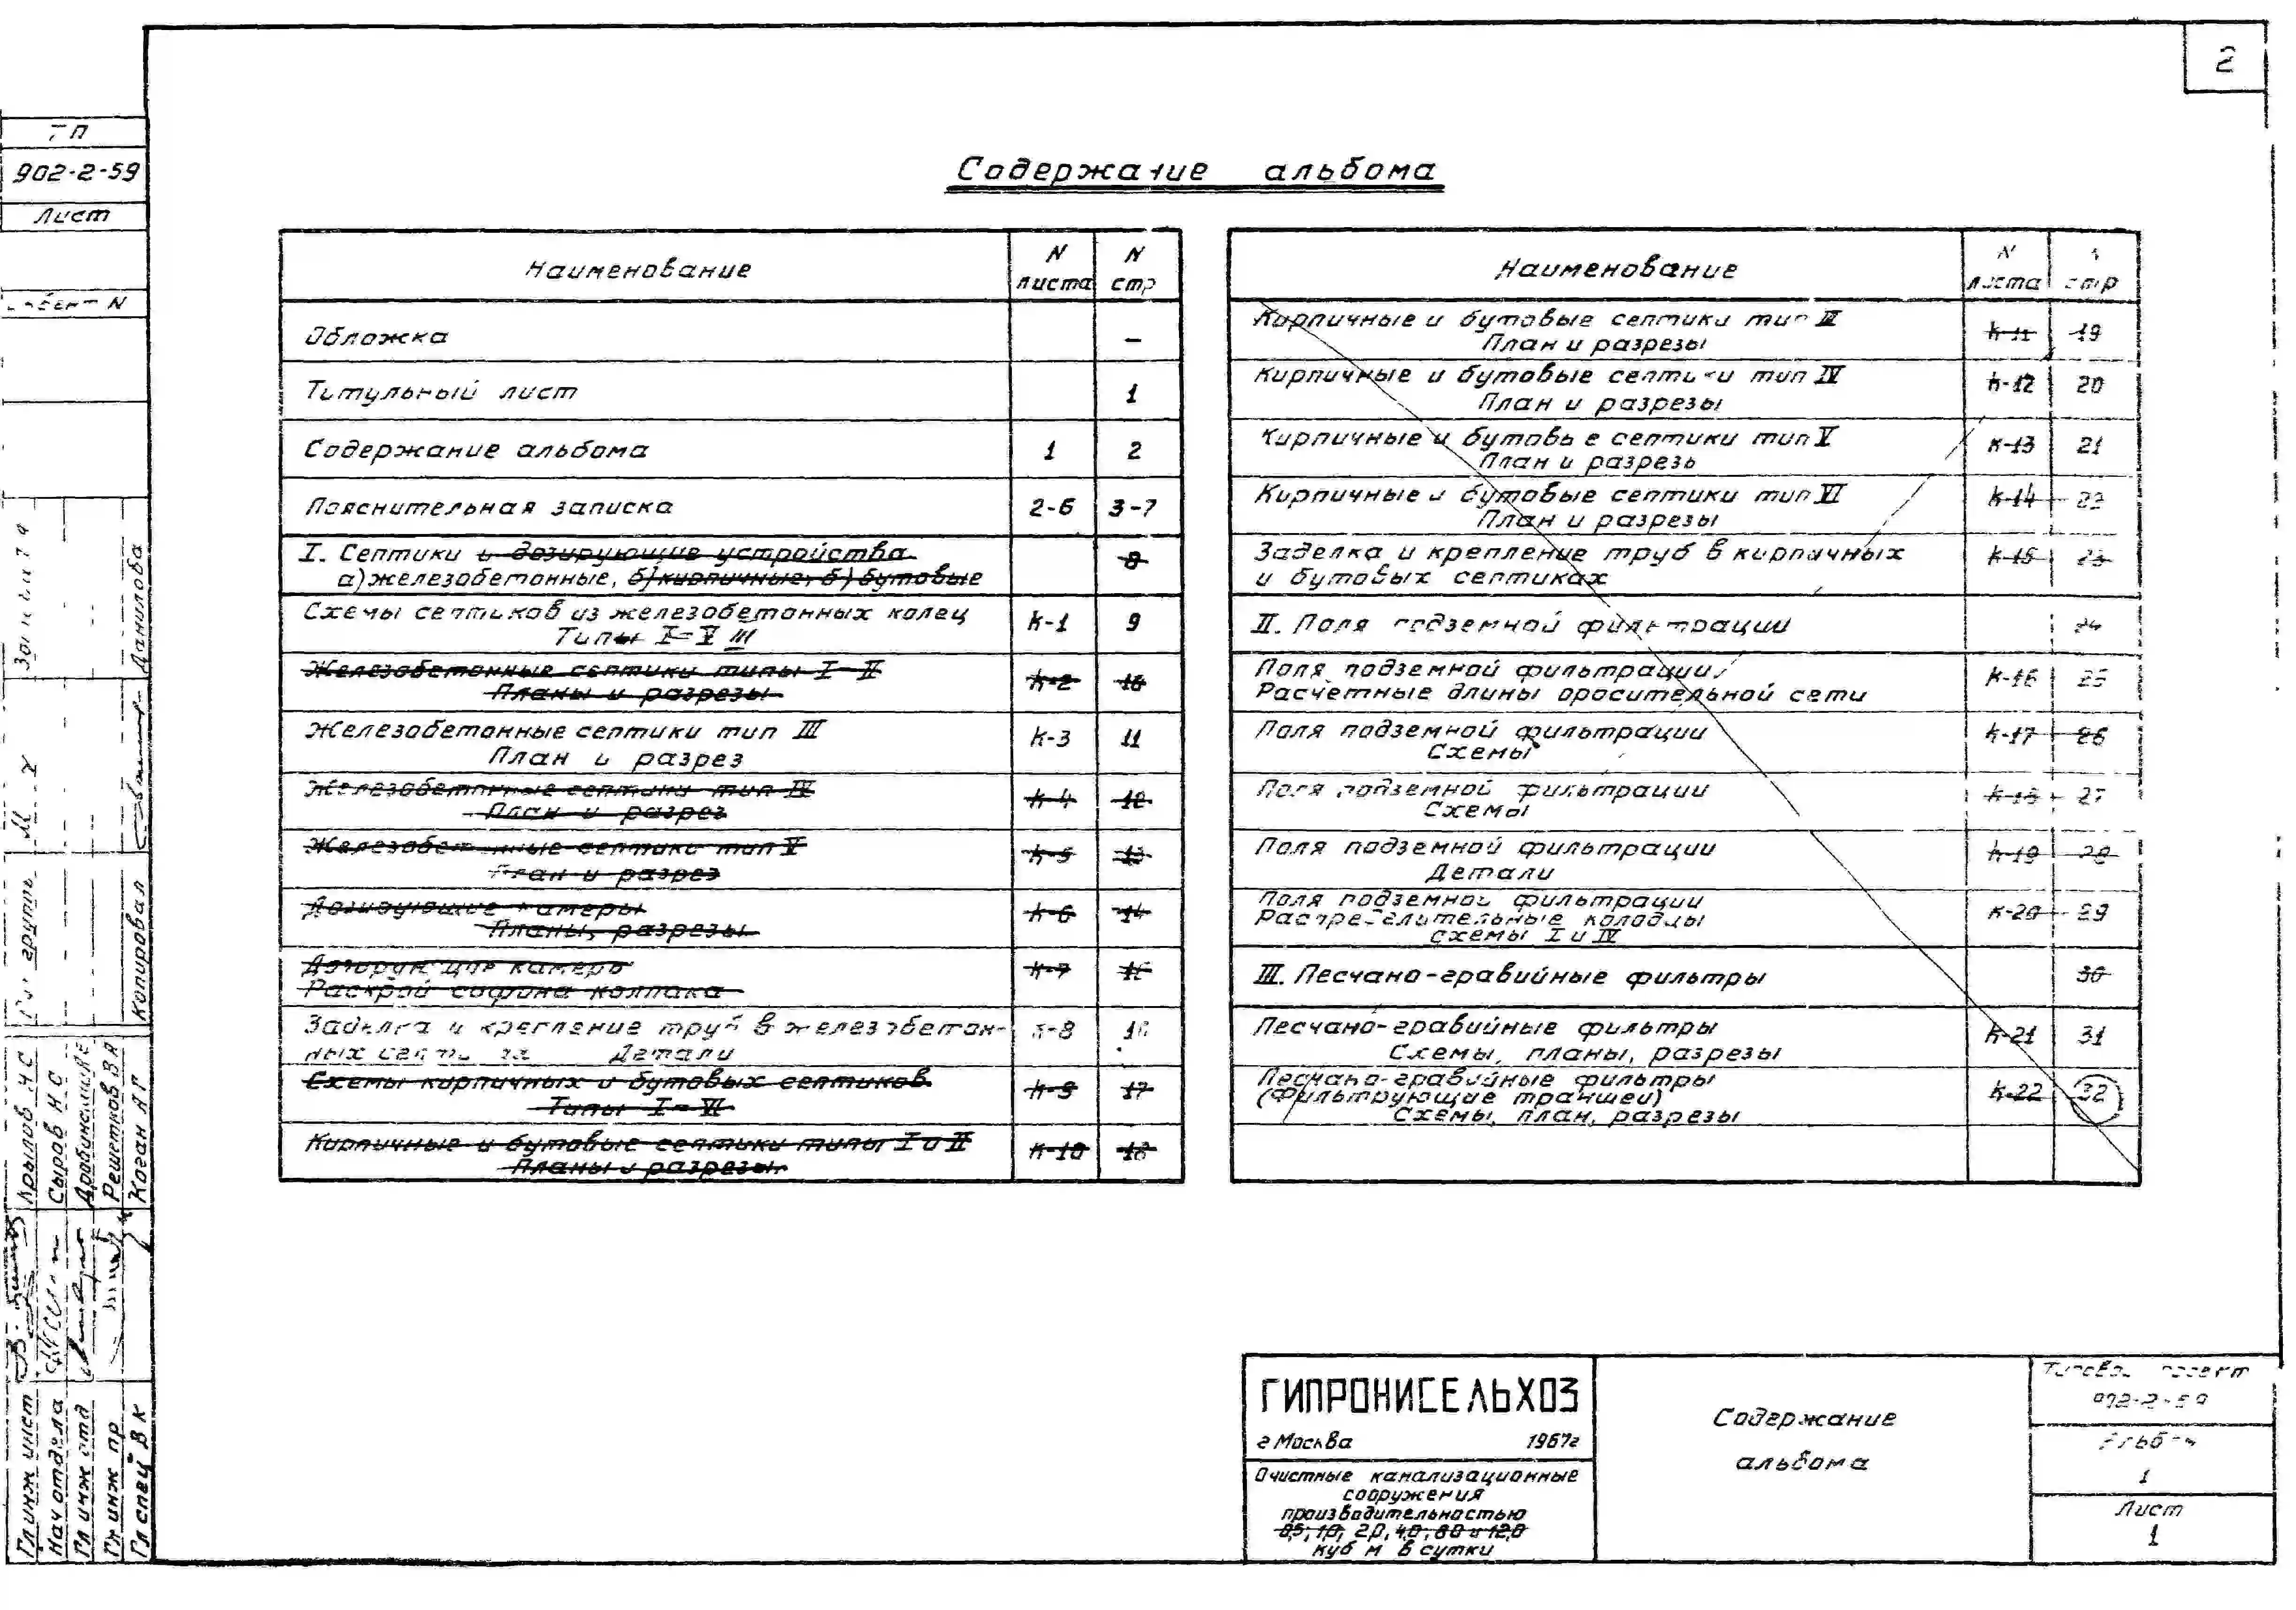 2
ТП
902-2-59
Лист
Содержание альбома
Наименование
N листа
N стр
Обложка
–
Титульный лист
1
Содержание альбома
1
2
Пояснительная записка
2-6
3-7
I. Септики и дозирующие устройства
а) железобетонные, б) кирпичные, в) бутовые
8
Схемы септиков из железобетонных колец
Типы I-V III
К-1
9
Железобетонные септики типы I-II
Планы и разрезы
К-2
10
Железобетонные септики тип III
План и разрез
К-3
11
Железобетонные септики тип IV
План и разрез
К-4
12
Железобетонные септики тип V
План и разрез
К-5
13
Дозирующие камеры
Планы, разрезы
К-6
14
Дозирующие камеры
Раскрой сифона колпака
К-7
15
Заделка и крепление труб в железобетон-
ных септиках Детали
К-8
16
Схемы кирпичных и бутовых септиков
Типы I-VI
К-9
17
Кирпичные и бутовые септики типы I и II
Планы и разрезы
К-10
18
Наименование
N листа
стр
Кирпичные и бутовые септики тип III
План и разрезы
К-11
19
Кирпичные и бутовые септики тип IV
План и разрезы
К-12
20
Кирпичные и бутовые септики тип V
План и разрезы
К-13
21
Кирпичные и бутовые септики тип VI
План и разрезы
К-14
22
Заделка и крепление труб в кирпичных
и бутовых септиках
К-15
23
II. Поля подземной фильтрации
24
Поля подземной фильтрации
Расчётные длины оросительной сети
К-16
25
Поля подземной фильтрации
Схемы
К-17
26
Поля подземной фильтрации
Схемы
К-18
27
Поля подземной фильтрации
Детали
К-19
28
Поля подземной фильтрации
Распределительные колодцы
схемы I и IV
К-20
29
III. Песчано-гравийные фильтры
30
Песчано-гравийные фильтры
Схемы, планы, разрезы
К-21
31
Песчано-гравийные фильтры
(Фильтрующие траншеи)
Схемы, план, разрезы
К-22
32
Данилова
Рук группы
Копировал
Крылов Н С
Сыров Н С
Решетков В А
Коган А Г
Гл инж инст
Нач отдела
Гл инж отд
Гл инж пр
Гл спец В К
ГИПРОНИСЕЛЬХОЗ
г Москва 1967г
Очистные канализационные
сооружения
производительностью
0,5; 1,0; 2,0, 4,0; 8,0 и 12,0
куб м в сутки
Содержание
альбома
Типовой проект
902-2-59
Альбом
1
Лист
1